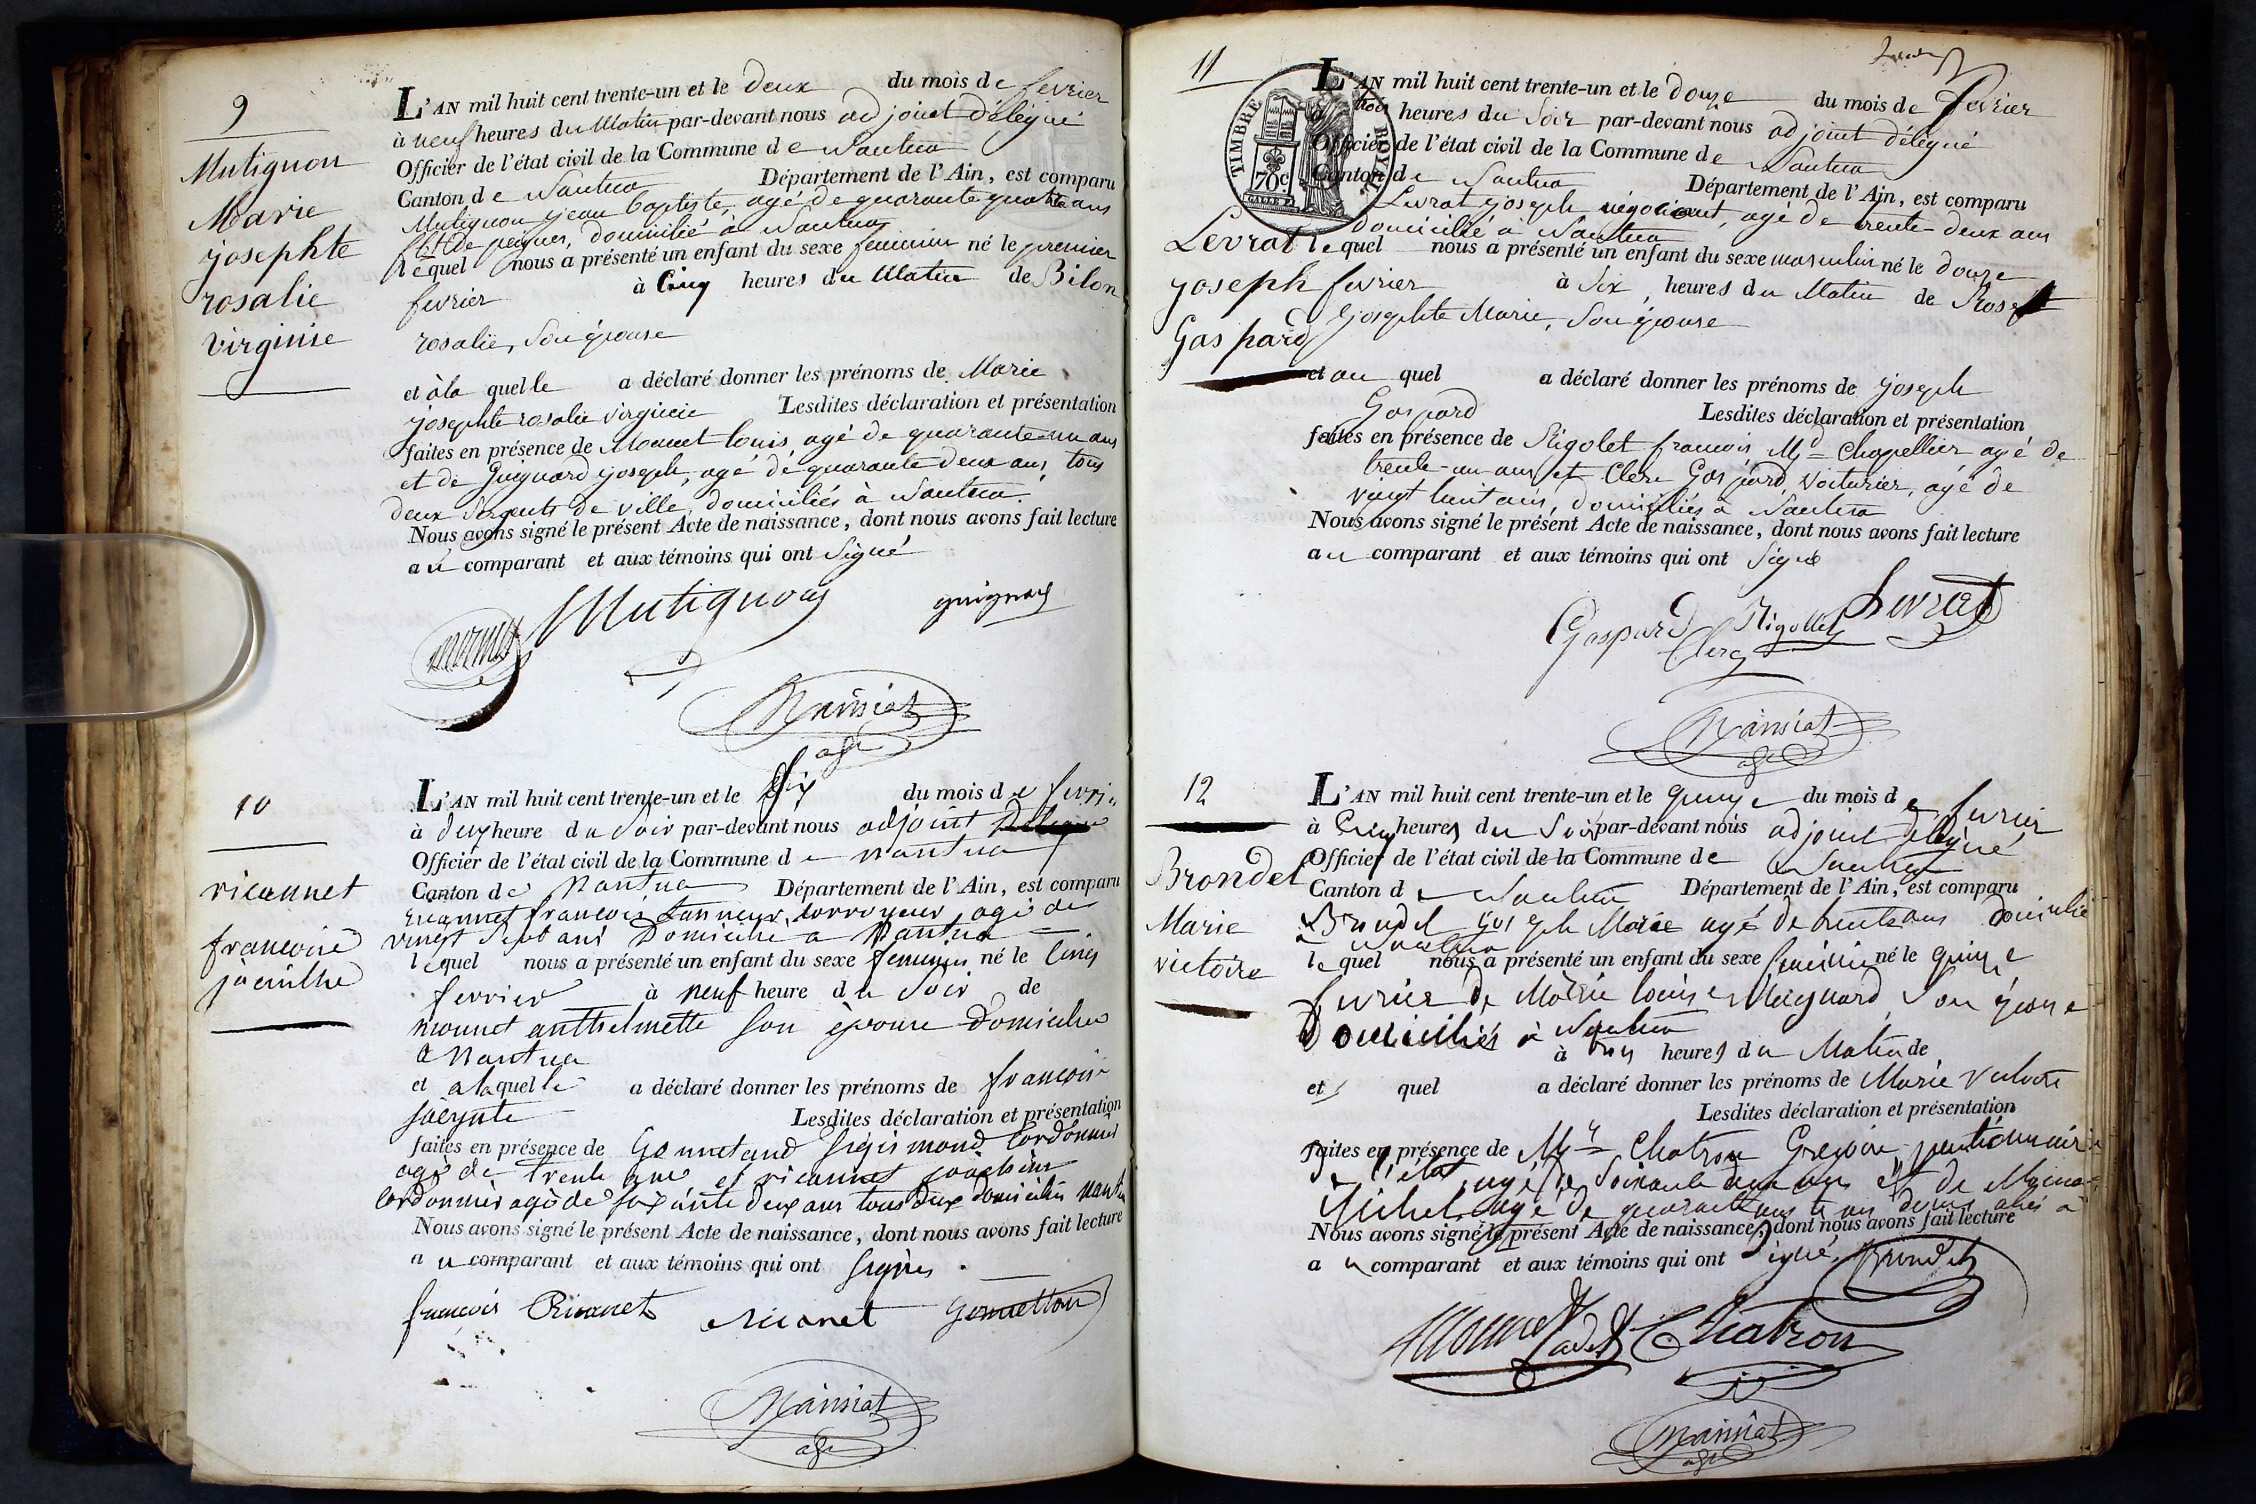 9
Mutignon
Marie
josephte
rosalie
virginie
L'AN mil huit cent trente-un et le deux du mois de fevrier
à neuf heures du Matin par-devant nous adjoint délégué
Officier de l'état civil de la Commune de Nantua
Canton de Nantua Département de l'Ain, est comparu
Mutignon jean baptiste, agé de quarante quatre ans
fbt de peignes, domicilié à Nantua
lequel nous a présenté un enfant du sexe feminin né le premier
fevrier à Cinq heures du Matin de Bilon
rosalie, Son épouse
et à la quelle a déclaré donner les prénoms de Marie
josephte rosalie virginie Lesdites déclaration et présentation
faites en présence de Monnet louis, agé de quarante un ans
et de Guignard joseph, agé de quarante deux ans, tous
deux Sergents de ville, domiciliés à Nantua.
Nous avons signé le présent Acte de naissance, dont nous avons fait lecture
au comparant et aux témoins qui ont Signé
Mutignon guignard
Mansiat
adj
10
ricannet
francoise
jacinthe
L'AN mil huit cent trente-un et le Six du mois de fevrier
à deux heure du Soir par-devant nous adjoint Délégué
Officier de l'état civil de la Commune de nantua
Canton de Nantua Département de l'Ain, est comparu
ricannet francois tanneur, corroyeur agé de
vingt Sept ans Domicilié a Nantua
lequel nous a présenté un enfant du sexe feminin né le Cinq
fevrier à neuf heure du Soir de
monnet anthelmette Son épouse Domiciliée
a Nantua
et a la quelle a déclaré donner les prénoms de francoise
jacynte Lesdites déclaration et présentation
faites en présence de Gonnetand Sigismond Cordonnier
agé de trente ans et ricannet
Cordonnier agé de Soixante deux ans tous deux domiciliés nantua
Nous avons signé le présent Acte de naissance, dont nous avons fait lecture
au comparant et aux témoins qui ont Signés.
françois Ricanet Ricanet
Mansiat
adj
11
TIMBRE ROYAL
70c
Levrat
joseph
Gaspard
L'AN mil huit cent trente-un et le douze du mois de fevrier
à trois heures du Soir par-devant nous adjoint délégué
Officier de l'état civil de la Commune de Nantua
Canton de Nantua Département de l'Ain, est comparu
Levrat joseph négociant, agé de trente-deux ans
domicilié à Nantua
lequel nous a présenté un enfant du sexe masculin né le douze
fevrier à Six heures du Matin de
josephte Marie, Son épouse
et au quel a déclaré donner les prénoms de joseph
Gaspard Lesdites déclaration et présentation
faites en présence de Rigolet francois, Md Chapellier agé de
trente-un ans et Clerc Gaspard, voiturier, agé de
vingt huit ans, domiciliés à Nantua
Nous avons signé le présent Acte de naissance, dont nous avons fait lecture
au comparant et aux témoins qui ont Signé
Gaspard Clerc Rigollet Levrat
Mansiat
adj
12
Brondel
Marie
victoire
L'AN mil huit cent trente-un et le quinze du mois de fevrier
à Cinq heures du Soir par-devant nous adjoint délégué
Officier de l'état civil de la Commune de Nantua
Canton de Nantua Département de l'Ain, est comparu
Brondel joseph Marie agé de trente ans domicilié
à Nantua
lequel nous a présenté un enfant du sexe feminin né le quinze
fevrier de Marie louise Maynard, Son épouse
Domiciliés à Nantua
à trois heures du Matin de
et quel a déclaré donner les prénoms de Marie victoire
Lesdites déclaration et présentation
faites en présence de Mrs Chatron Gregoire pentionnaire
de l'état, agé de Soixante deux ans et de
Michel, agé de quarante ans
Nous avons signé le présent Acte de naissance, dont nous avons fait lecture
au comparant et aux témoins qui ont Signé, Brondel
Monnet Cadet Chatron
Mansiat
adj